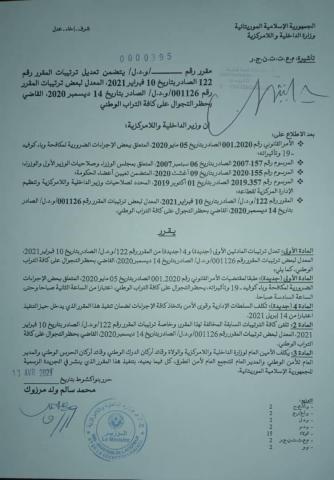 الجمهورية الإسلامية الموريتانية
شرف، إخاء، عدل
وزارة الداخلية و اللامركزية
تأشيرة:
0000395
مقرر رقم /و.د.ل/ يتضمن تعديل ترتيبات المقرر رقم
122 /و.د.ل/ الصادر بتاريخ 10 فبراير 2021، المعدل لبعض ترتيبات المقرر
رقم 001126/و.د.ل/ الصادر بتاريخ 14 ديسمبر 2020، القاضي
بحظر التجوال على كافة التراب الوطني
إن وزير الداخلية واللامركزية،
بعد الاطلاع على:
الأمر القانوني رقم 001.2020 الصادر بتاريخ 05 مايو 2020، المتعلق ببعض الإجراءات الضرورية لمكافحة وباء كوفيد
- 19 وتأثيراته؛
المرسوم رقم 157-2007 الصادر بتاريخ 06 سبتمبر 2007، المتعلق بمجلس الوزراء وصلاحيات الوزير الأول والوزراء؛
المرسوم رقم 155-2020 الصادر بتاريخ 09 غشت 2020، المتضمن تعيين أعضاء الحكومة؛
المرسوم رقم 357-2019 الصادر بتاريخ 01 أكتوبر 2019، المحدد لصلاحيات وزير الداخلية واللامركزية وتنظيم
الإدارة المركزية لقطاعه؛
المقرر رقم 122/و.د.ل/ الصادر بتاريخ 10 فبراير 2021، المعدل لبعض ترتيبات المقرر رقم 001126/و.د.ل/ الصادر
بتاريخ 14 ديسمبر 2020، القاضي بحظر التجوال على كافة التراب الوطني.
يقرر
المادة الأولى: تعدل ترتيبات المادتين الأولى (جديدة) و 4 (جديدة) من المقرر رقم 122/و.د.ل/ الصادر بتاريخ 10 فبراير 2021،
المعدل لبعض ترتيبات المقرر رقم 001126/و.د.ل/ الصادر بتاريخ 14 ديسمبر 2020، القاضي بحظر التجوال على كافة التراب
الوطني، كما يلي:
المادة الأولى (جديدة): طبقا لمقتضيات الأمر القانوني رقم 001.2020 الصادر بتاريخ 05 مايو 2020، المتعلق ببعض الإجراءات
الضرورية لمكافحة وباء كوفيد - 19 وتأثيراته، يحظر التجوال على كافة التراب الوطني، اعتبارا من الساعة الثانية صباحا وحتى
الساعة السادسة صباحا.
المادة 4 (جديدة): تكلف السلطات الإدارية وقوى الأمن باتخاذ كافة الإجراءات لضمان تنفيذ هذا المقرر الذي يدخل حيز التنفيذ
اعتبارا من 14 إبريل 2021.
المادة 2: تلغى كافة الترتيبات السابقة المخالفة لهذا المقرر وخاصة ترتيبات المقرر رقم 122/و.د.ل/ الصادر بتاريخ 10 فبراير
2021، المعدل لبعض ترتيبات المقرر رقم 001126/و.د.ل/ الصادر بتاريخ 14 ديسمبر 2020، القاضي بحظر التجوال على كافة
التراب الوطني.
المادة 3: يكلف الأمين العام لوزارة الداخلية واللامركزية والولاة وقائد أركان الدرك الوطني وقائد أركان الحرس الوطني والمدير
العام للأمن الوطني والمدير العام للتجمع العام لأمن الطرق، كل فيما يعنيه، بتنفيذ هذا المقرر الذي ينشر في الجريدة الرسمية
للجمهورية الإسلامية الموريتانية.
13 AVR 2021
حرر بنواكشوط بتاريخ
محمد سالم ولد مرزوك
الوزير
Le Ministre